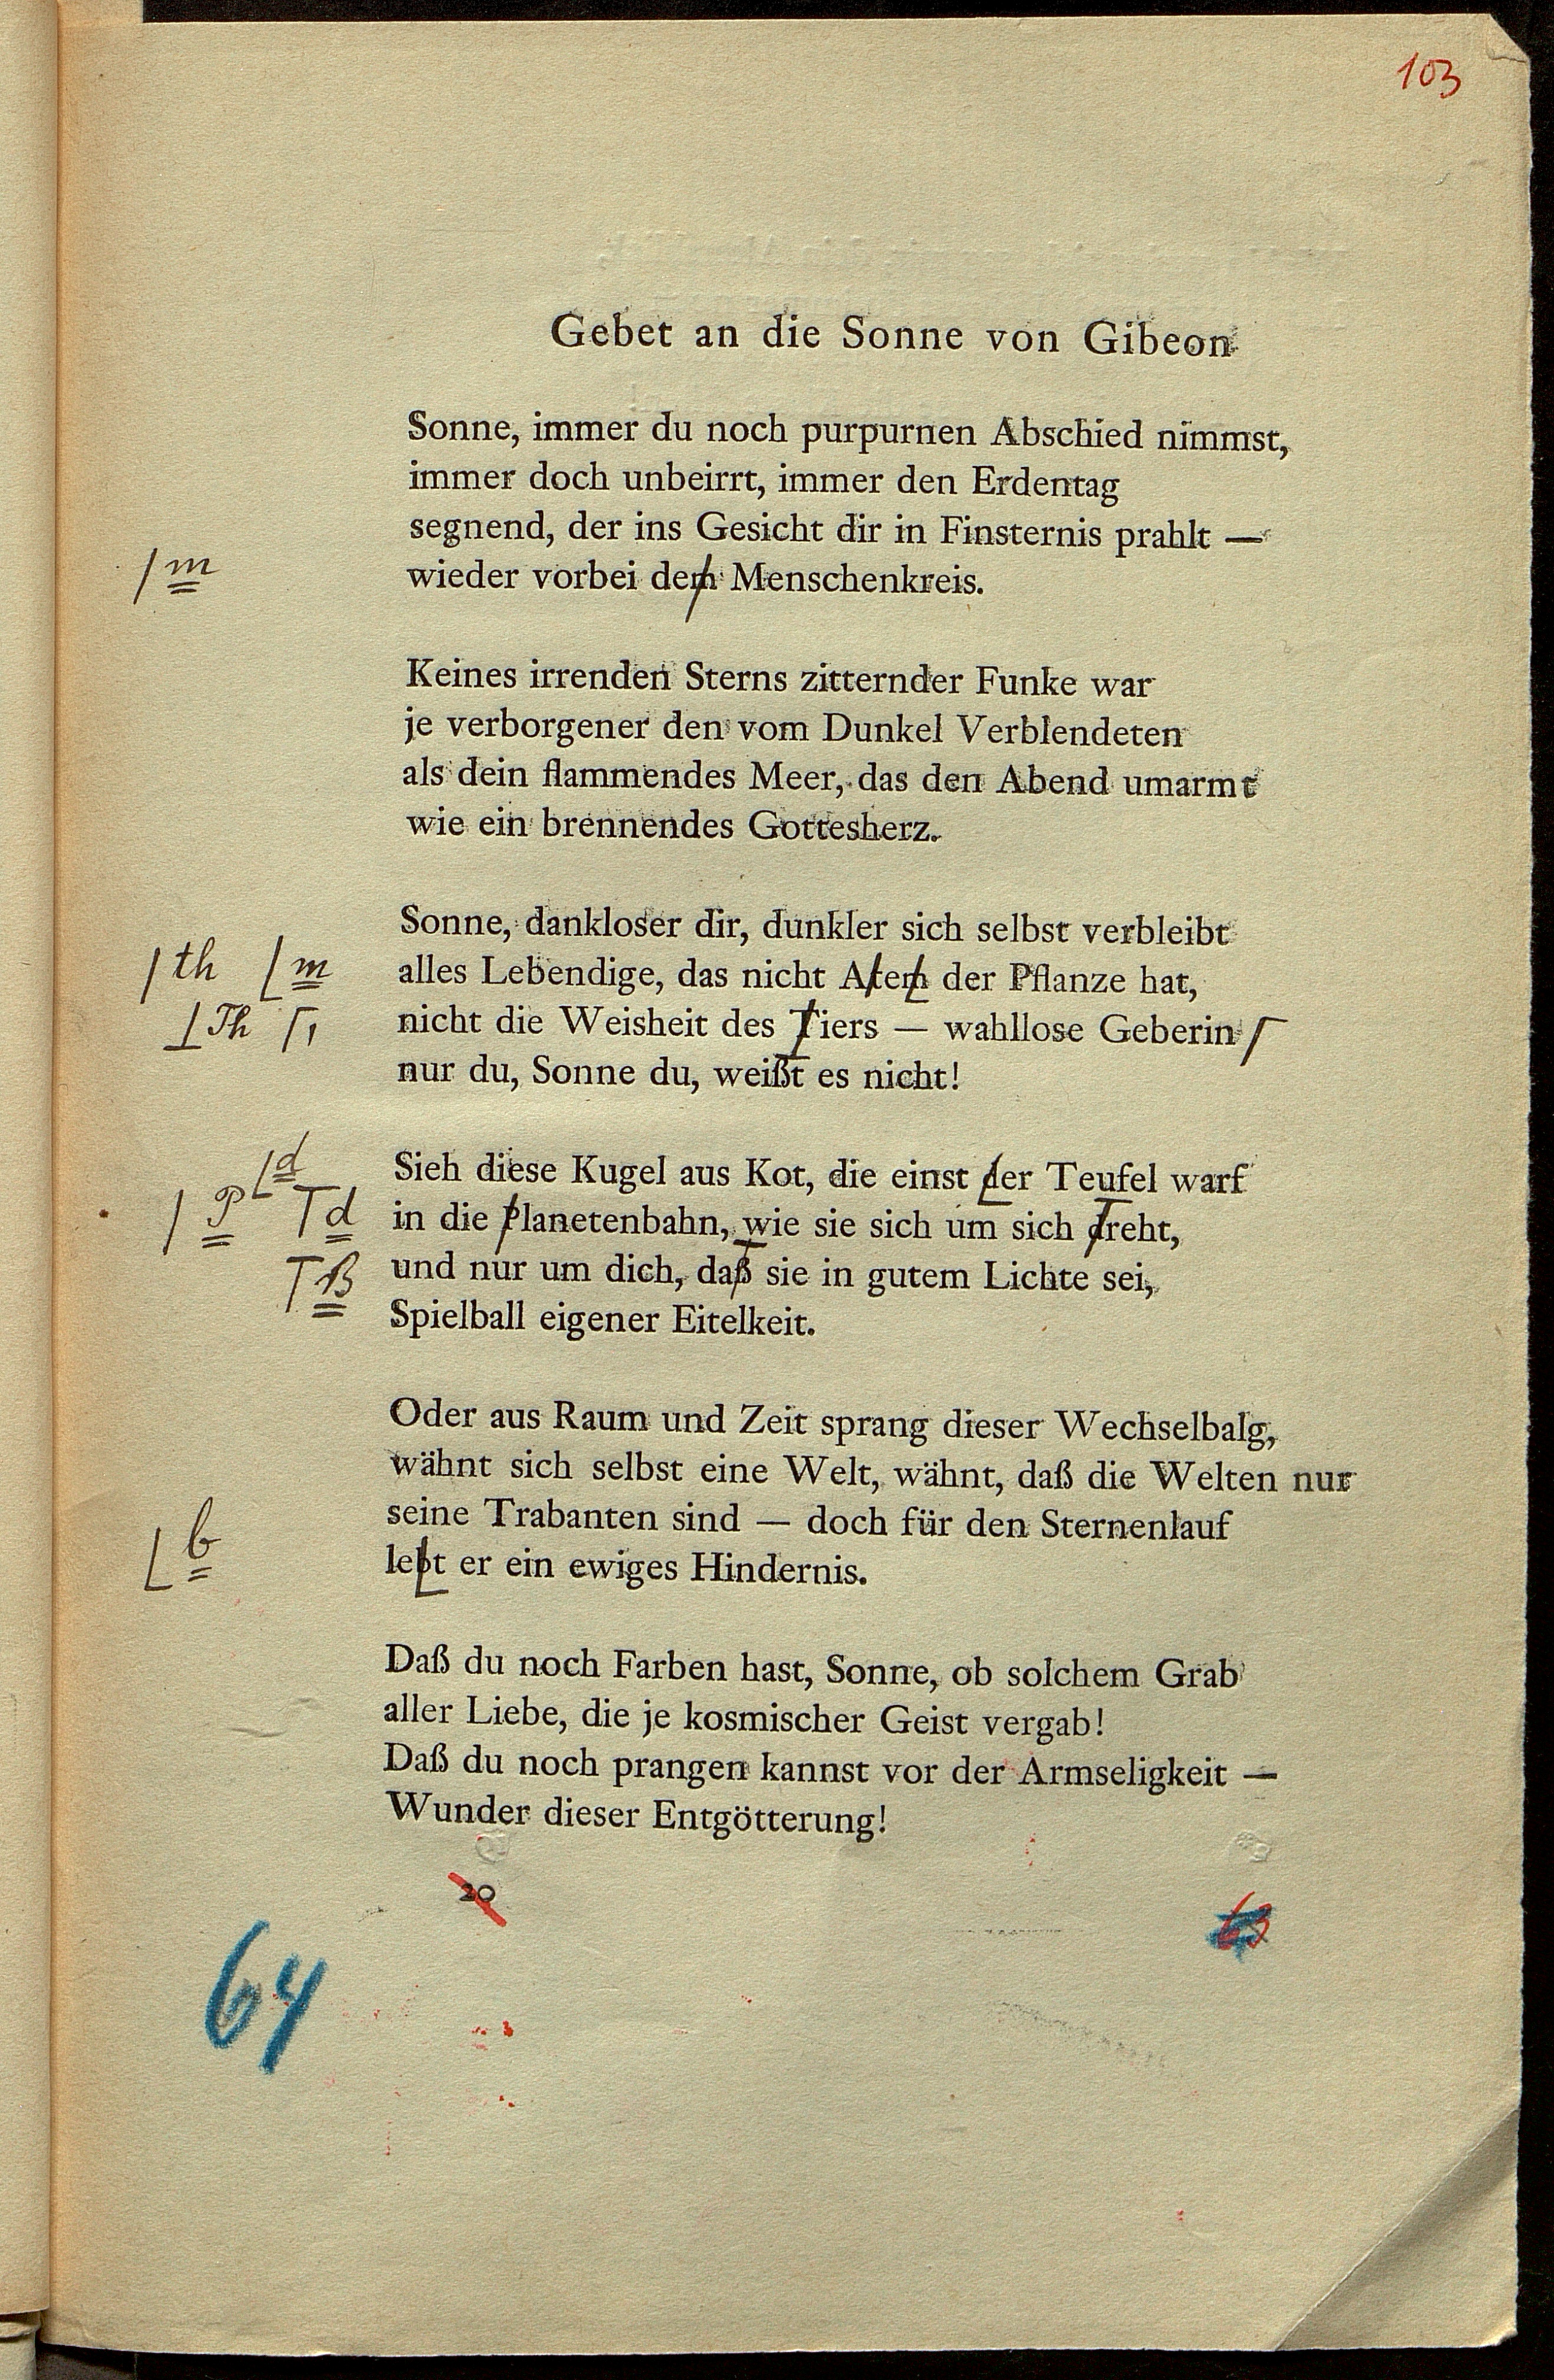 103
Gebet an die Sonne von Gibeon
Sonne, immer du noch purpurnen Abschied nimmst,
immer doch unbeirrt, immer den Erdentag
segnend, der ins Gesicht dir in Finsternis prahlt —
m
wieder vorbei dem Menschenkreis.
Keines irrenden Sterns zitternder Funke war
je verborgener den vom Dunkel Verblendeten
als dein flammendes Meer, das den Abend umarmt
wie ein brennendes Gottesherz.
Sonne, dankloser dir, dunkler sich selbst verbleibt
th m
alles Lebendige, das nicht Atem der Pflanze hat,
Th ,
nicht die Weisheit des Tiers — wahllose Geberin
nur du, Sonne du, weißt es nicht!
d
Sieh diese Kugel aus Kot, die einst der Teufel warf
P d
in die Planetenbahn, wie sie sich um sich dreht,
ß
und nur um dich, daß sie in gutem Lichte sei,
Spielball eigener Eitelkeit.
Oder aus Raum und Zeit sprang dieser Wechselbalg,
wähnt sich selbst eine Welt, wähnt, daß die Welten nur
seine Trabanten sind — doch für den Sternenlauf
b
lebt er ein ewiges Hindernis.
Daß du noch Farben hast, Sonne, ob solchem Grab
aller Liebe, die je kosmischer Geist vergab!
Daß du noch prangen kannst vor der Armseligkeit —
Wunder dieser Entgötterung!
20
63
64